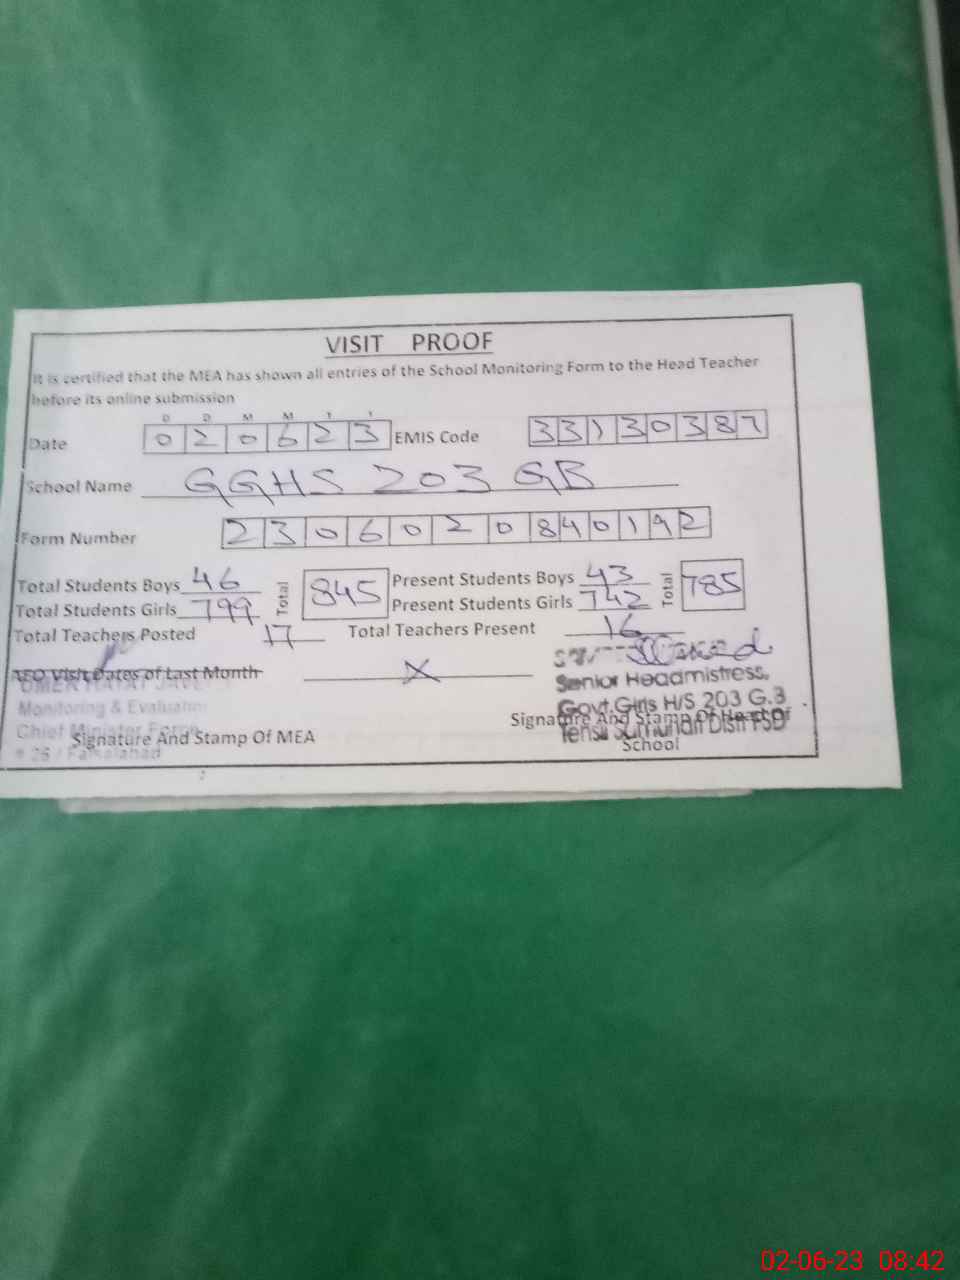 VISIT PROOF
It is certified that the MEA has shown all entries of the School Monitoring Form to the Head Teacher
before its online submission
D D M M Y Y
Date 0 2 0 6 2 3 EMIS Code 3 3 1 3 0 3 8 7
School Name GGHS 203 GB
Form Number 2 3 0 6 0 2 0 8 4 0 1 9 2
Total Students Boys 46 Total 845 Present Students Boys 43 Total 785
Total Students Girls 799 Present Students Girls 742
Total Teachers Posted 17 Total Teachers Present 16
AEO Visit Dates of Last Month X
Senior Headmistress,
Monitoring & Evaluation
Govt.Girls H/S 203 G.B
Chief Minister
Signature And Stamp Of MEA
Signature And Stamp Of Head Of
School
Faisalabad
02-06-23 08:42